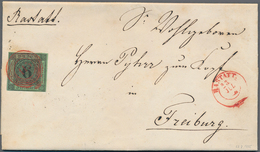 Rastatt.
Sr Wohlgeboren
Herrn Pyhrr zum Kopf
in
Freiburg.
6
RASTATT